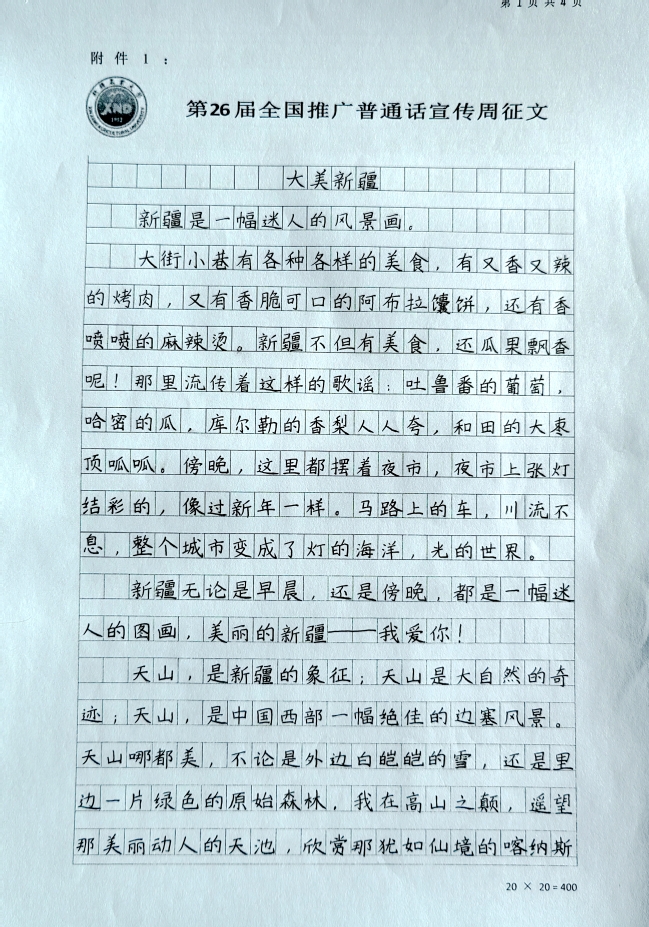 第1页共4页
附件1：
新疆农业大学
XINJIANG AGRICULTURAL UNIVERSITY
1952
第26届全国推广普通话宣传周征文
大美新疆
新疆是一幅迷人的风景画。
大街小巷有各种各样的美食，有又香又辣
的烤肉，又有香脆可口的阿布拉馕饼，还有香
喷喷的麻辣烫。新疆不但有美食，还瓜果飘香
呢！那里流传着这样的歌谣：吐鲁番的葡萄，
哈密的瓜，库尔勒的香梨人人夸，和田的大枣
顶呱呱。傍晚，这里都摆着夜市，夜市上张灯
结彩的，像过新年一样。马路上的车，川流不
息，整个城市变成了灯的海洋，光的世界。
新疆无论是早晨，还是傍晚，都是一幅迷
人的图画，美丽的新疆——我爱你！
天山，是新疆的象征；天山是大自然的奇
迹；天山，是中国西部一幅绝佳的边塞风景。
天山哪都美，不论是外边白皑皑的雪，还是里
边一片绿色的原始森林，我在高山之颠，遥望
那美丽动人的天池，欣赏那犹如仙境的喀纳斯
20×20=400